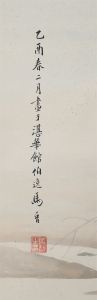 乙酉春二月畫于湛華館伯逸馬晋